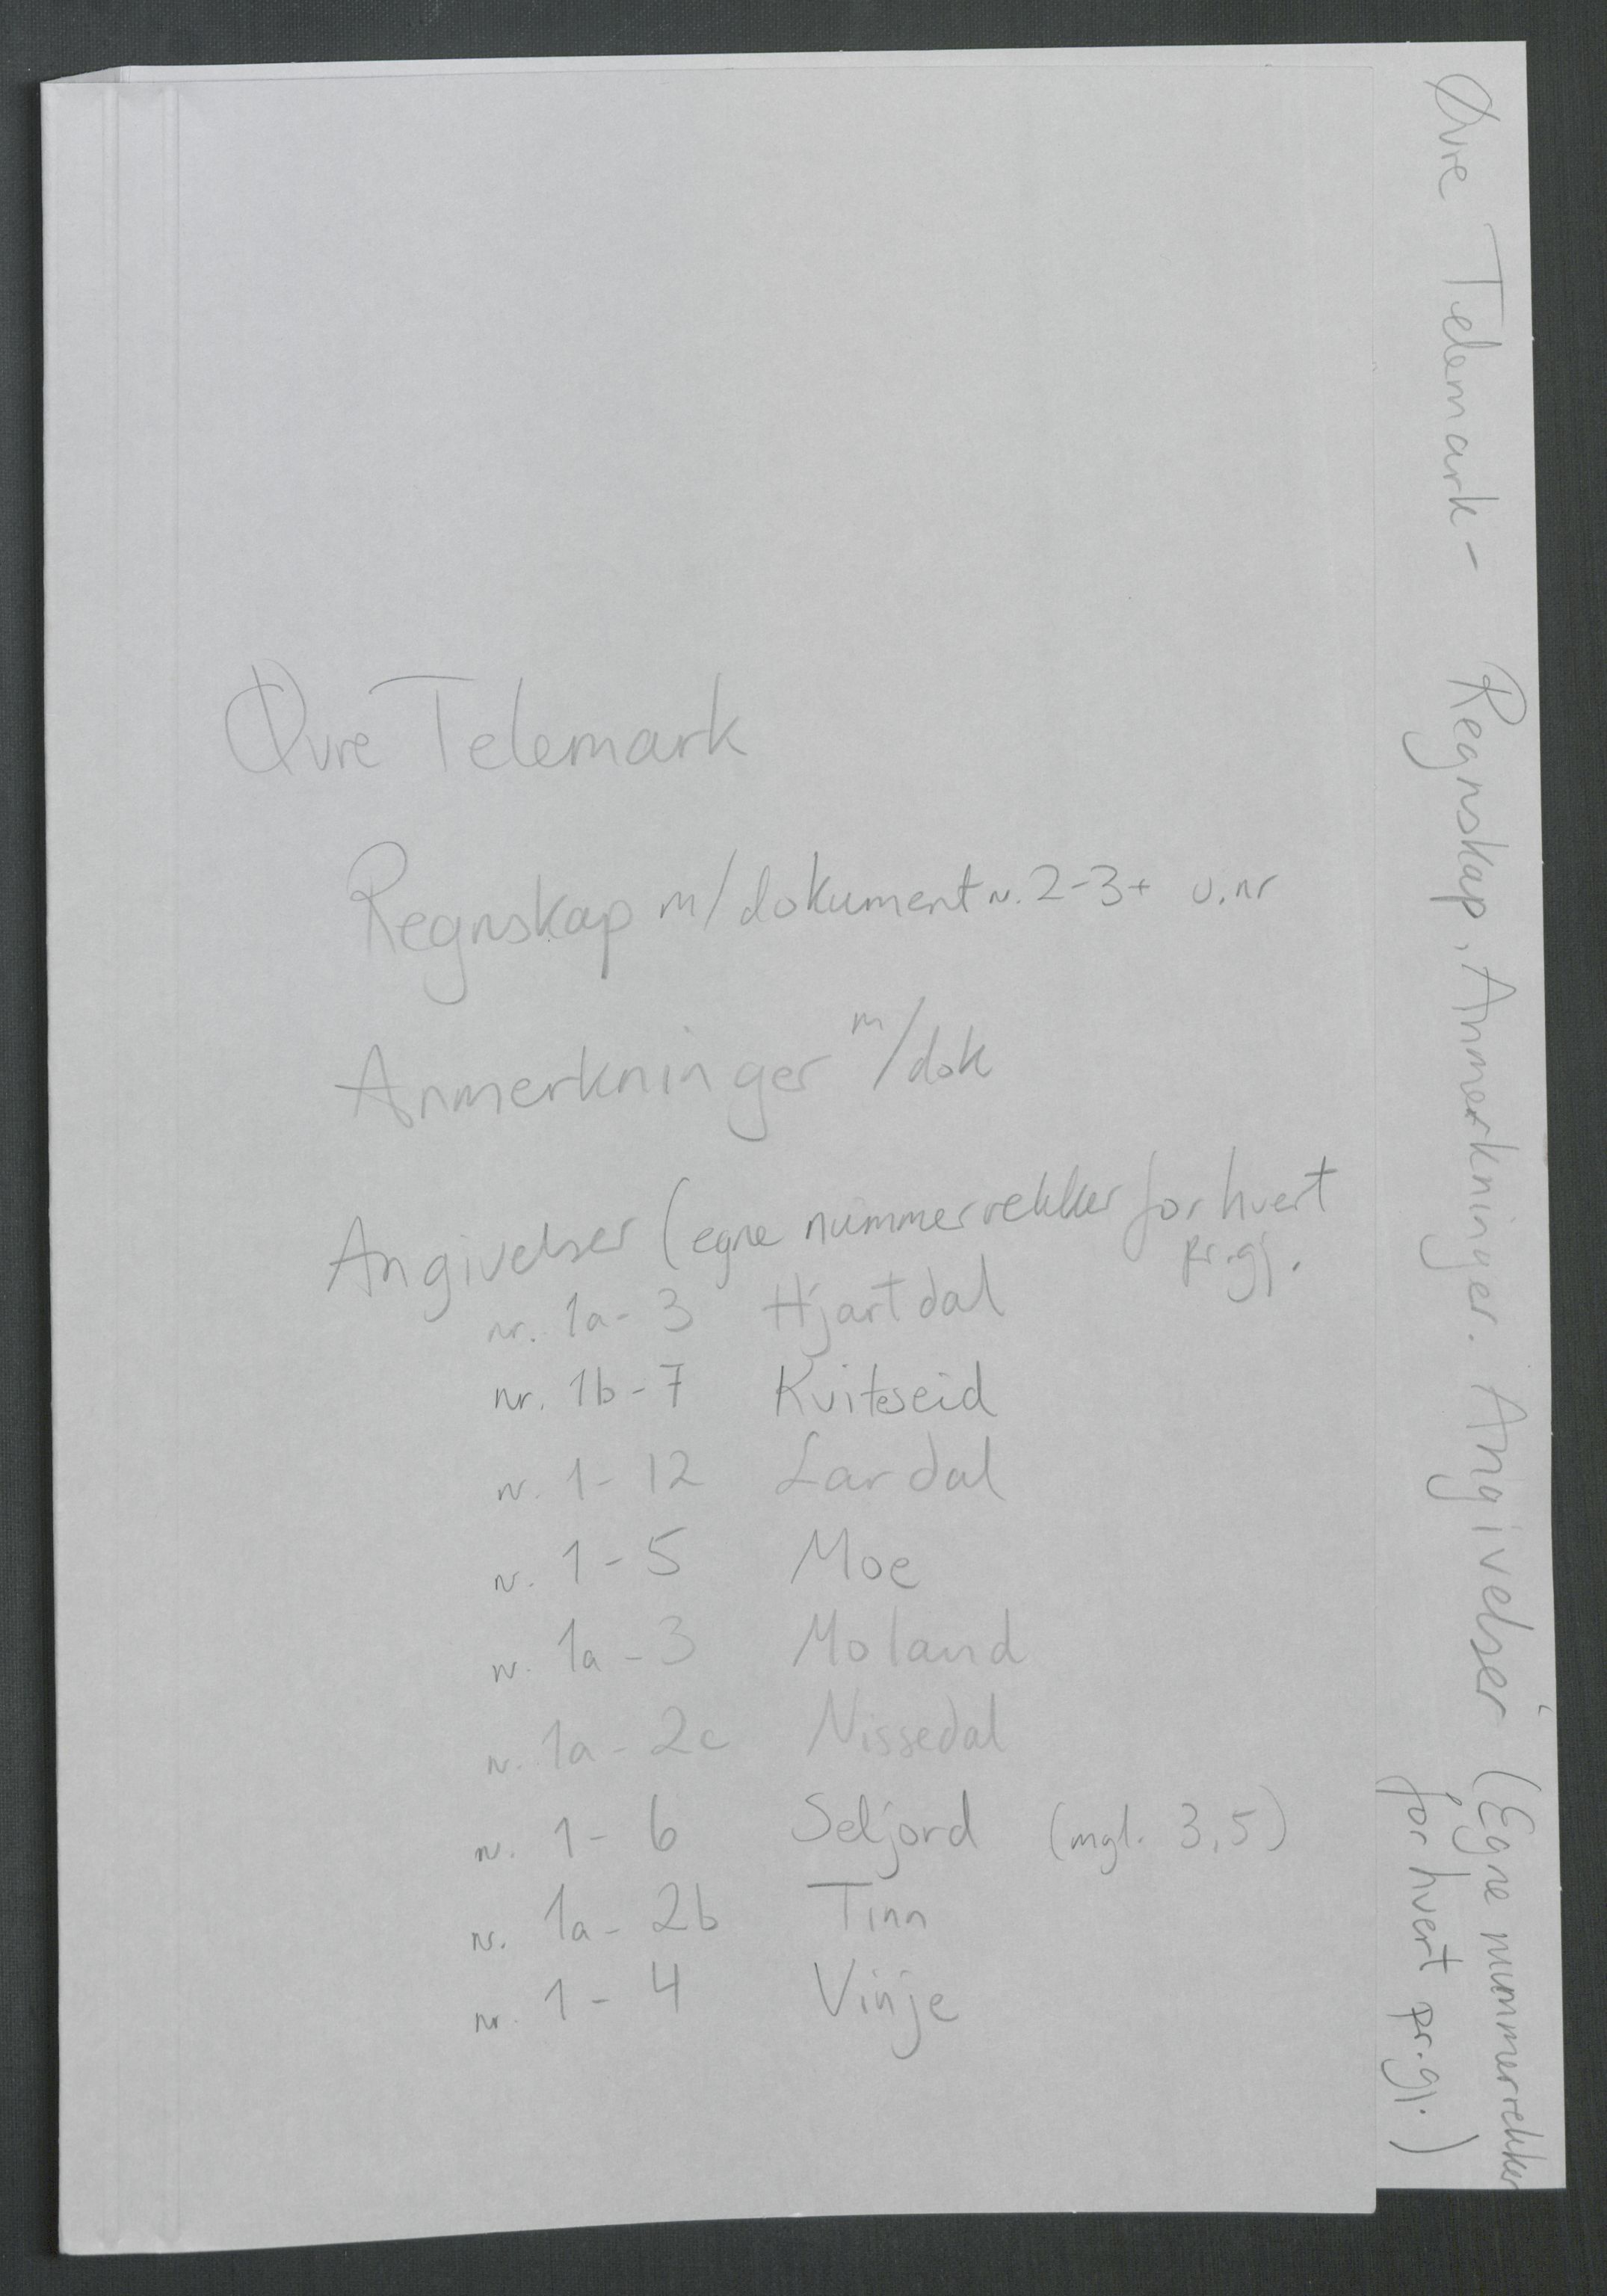 Øvre Telemark
Regnskap m/dokument n. 2-3 + u.nr
Anmerkninger m/dok
Angivelser (egne nummerrekker for hvert
pr.gj.
nr. 1a - 3 Hjartdal
nr. 1b - 7 Kviteseid
nr. 1 - 12 Lardal
nr. 1 - 5 Moe
nr. 1a - 3 Moland
nr. 1a - 2c Nissedal
nr. 1 - 6 Seljord (mgl. 3,5)
nr. 1a - 2b Tinn
nr. 1 - 4 Vinje
Øvre Telemark - Regnskap, Anmerkninger. Angivelser (Egne nummerrekker
for hvert pr.gj.)